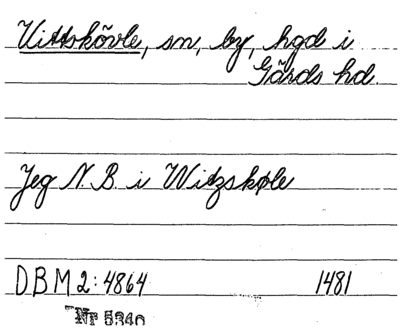 Vittskövle, sn, by, hgd i
Gärds hd.
Jeg N.B. i Witzskøle
DBM 2:4864 1481
Nr